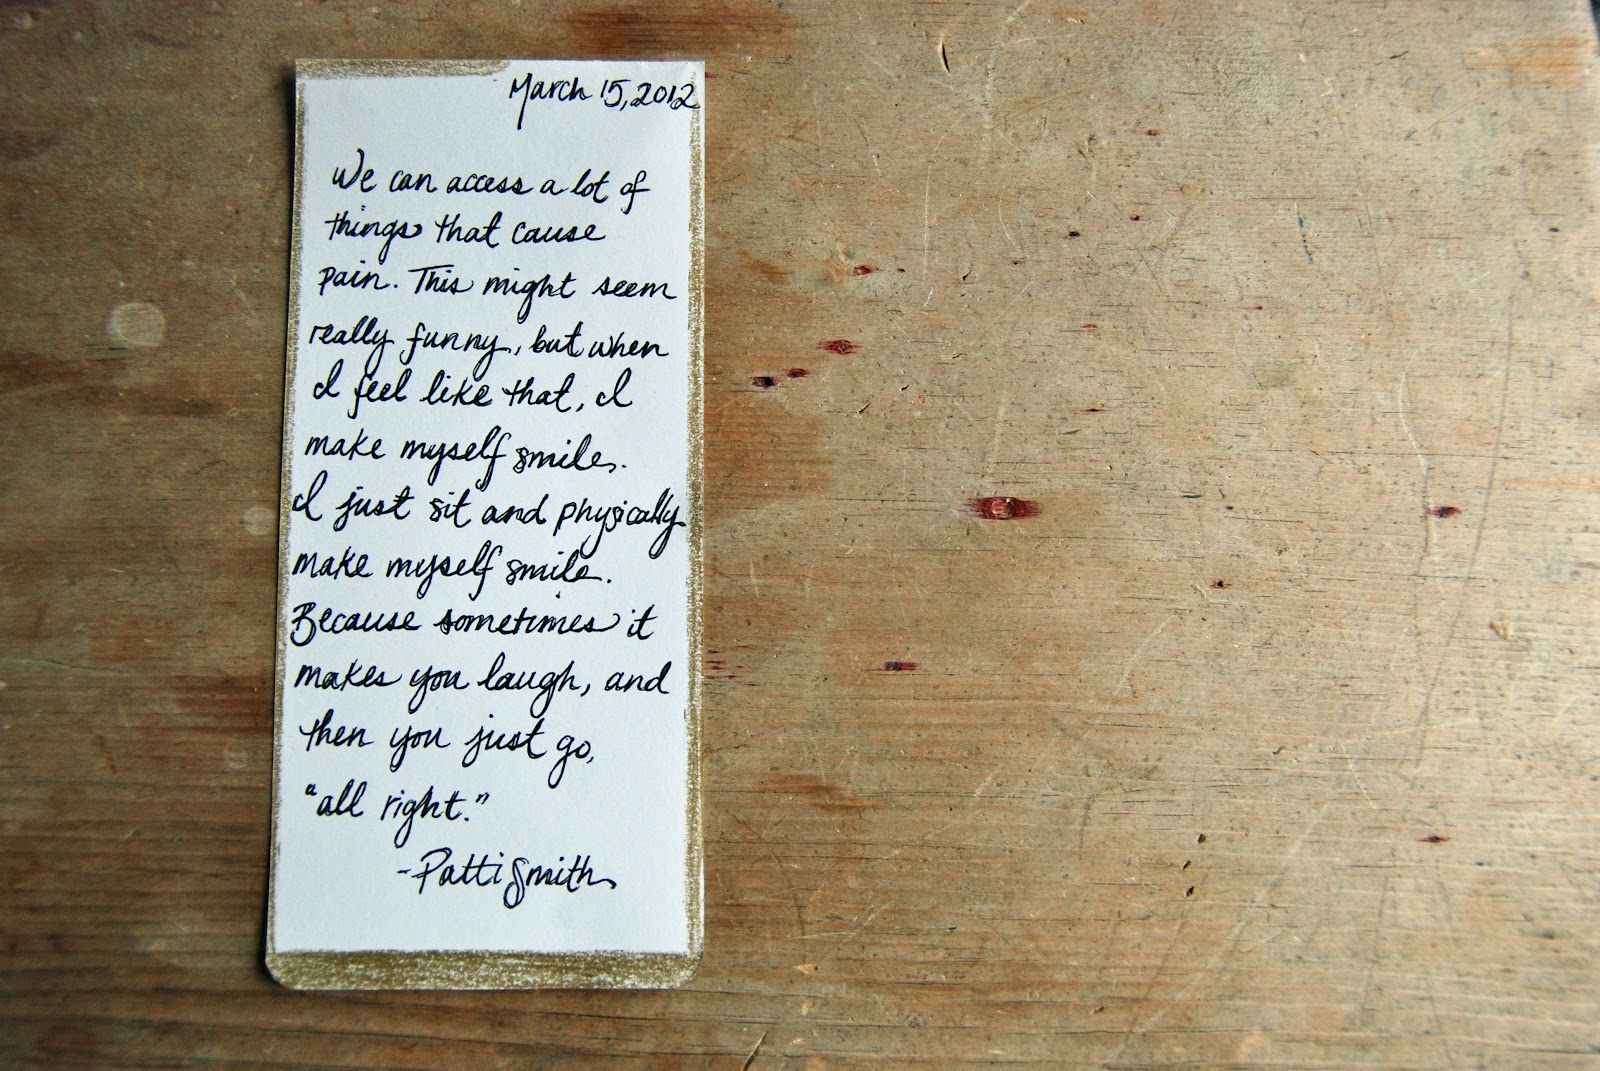 March 15, 2012
We can access a lot of
things that cause
pain. This might seem
really funny, but when
I feel like that, I
make myself smile.
I just sit and physically
make myself smile.
Because sometimes it
makes you laugh, and
then you just go,
"all right."
-Patti Smith